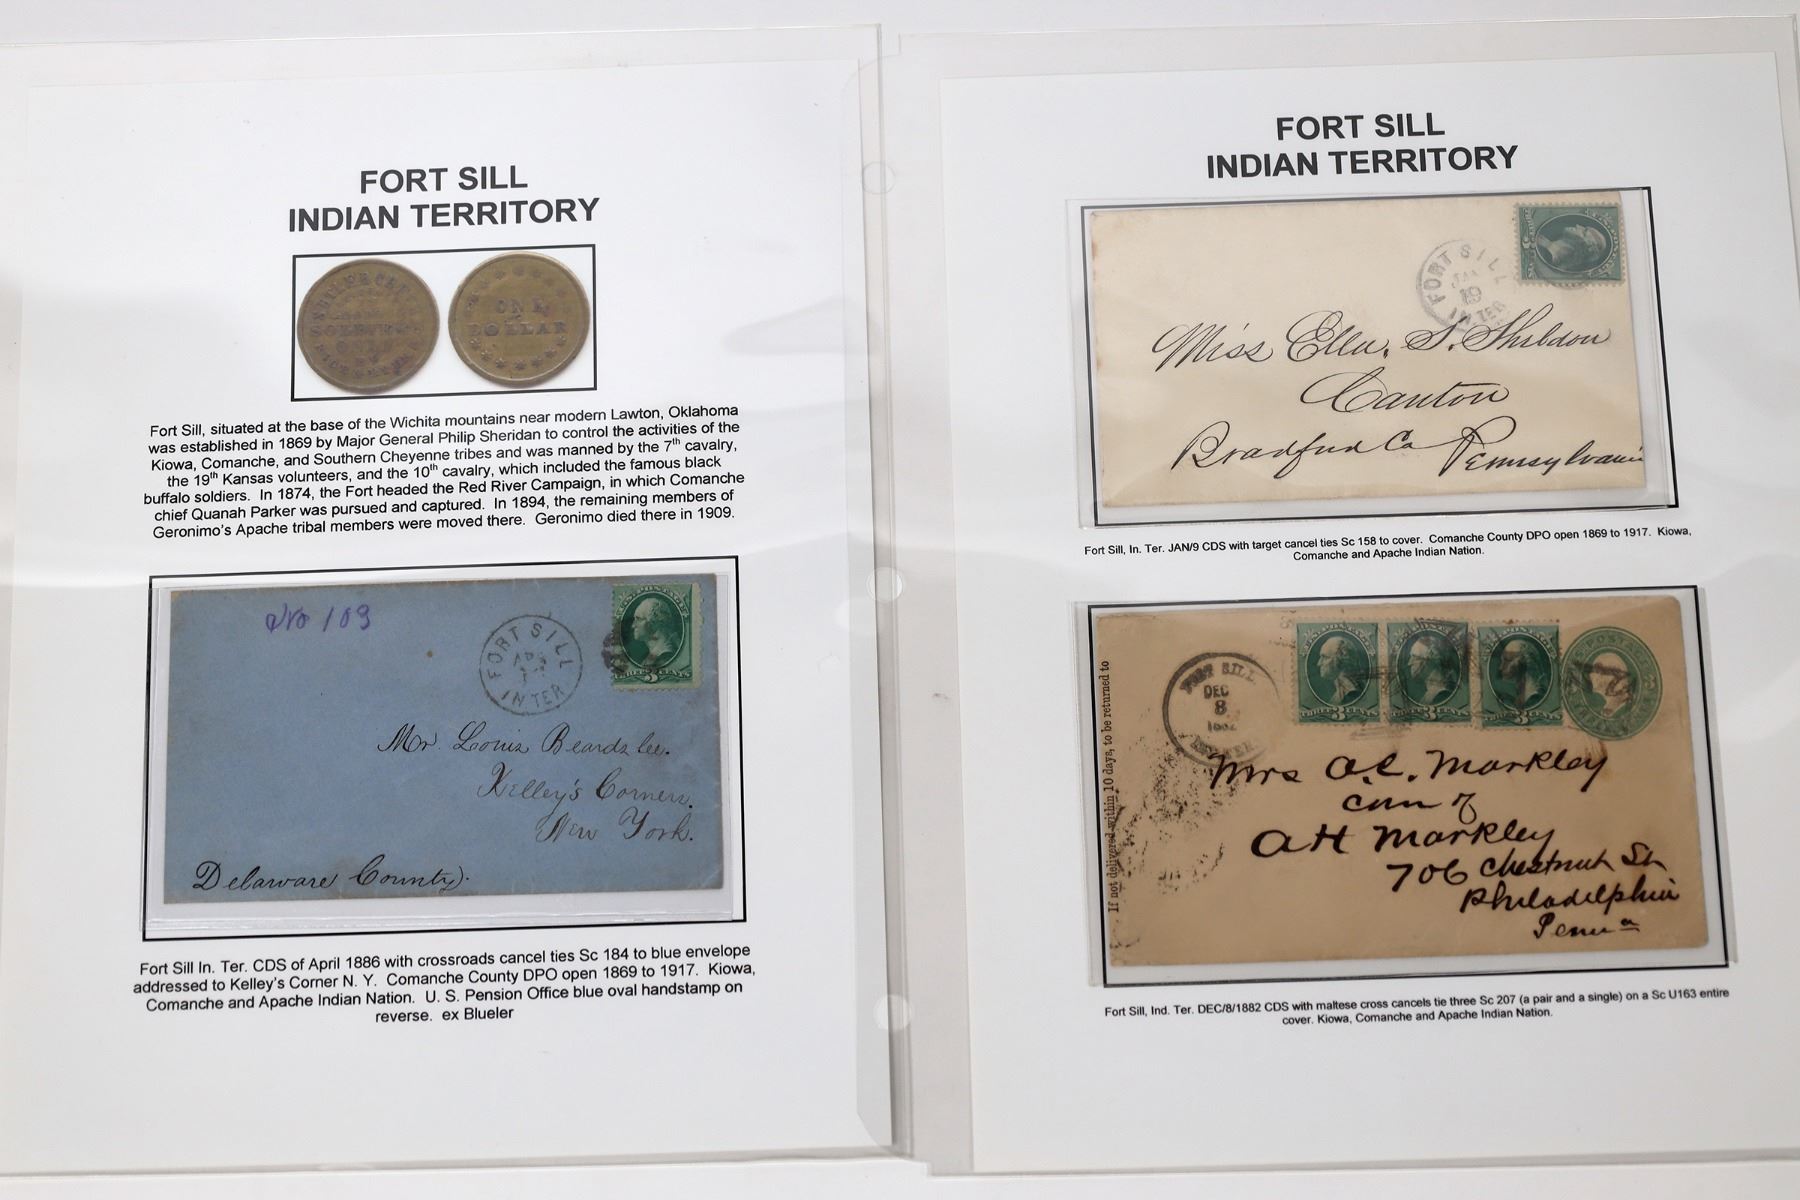 FORT SILL
INDIAN TERRITORY
SOLDIERS
ONLY
ONE
DOLLAR
Fort Sill, situated at the base of the Wichita mountains near modern Lawton, Oklahoma
was established in 1869 by Major General Philip Sheridan to control the activities of the
Kiowa, Comanche, and Southern Cheyenne tribes and was manned by the 7th cavalry,
the 19th Kansas volunteers, and the 10th cavalry, which included the famous black
buffalo soldiers. In 1874, the Fort headed the Red River Campaign, in which Comanche
chief Quanah Parker was pursued and captured. In 1894, the remaining members of
Geronimo's Apache tribal members were moved there. Geronimo died there in 1909.
No 109
FORT SILL
IN TER
U.S. POSTAGE
THREE 3 CENTS
Mr. Louis Beardslee.
Kelley's Corners.
New York.
Delaware County.
Fort Sill In. Ter. CDS of April 1886 with crossroads cancel ties Sc 184 to blue envelope
addressed to Kelley's Corner N. Y. Comanche County DPO open 1869 to 1917. Kiowa,
Comanche and Apache Indian Nation. U. S. Pension Office blue oval handstamp on
reverse. ex Blueler
FORT SILL
INDIAN TERRITORY
FORT SILL
JAN
19
IN TER
Miss Ellen. S. Sheldon
Canton
Bradford Co Pennsylvania
Fort Sill, In. Ter. JAN/9 CDS with target cancel ties Sc 158 to cover. Comanche County DPO open 1869 to 1917. Kiowa,
Comanche and Apache Indian Nation.
If not delivered within 10 days, to be returned to
FORT SILL
DEC
8
1882
IND. TER.
THREE 3 CENTS
THREE 3 CENTS
THREE 3 CENTS
U.S. POSTAGE
Mrs A.C. Markley
Care of
AH Markley
706 Chestnut St
Philadelphia
Penna
Fort Sill, Ind. Ter. DEC/8/1882 CDS with maltese cross cancels tie three Sc 207 (a pair and a single) on a Sc U163 entire
cover. Kiowa, Comanche and Apache Indian Nation.